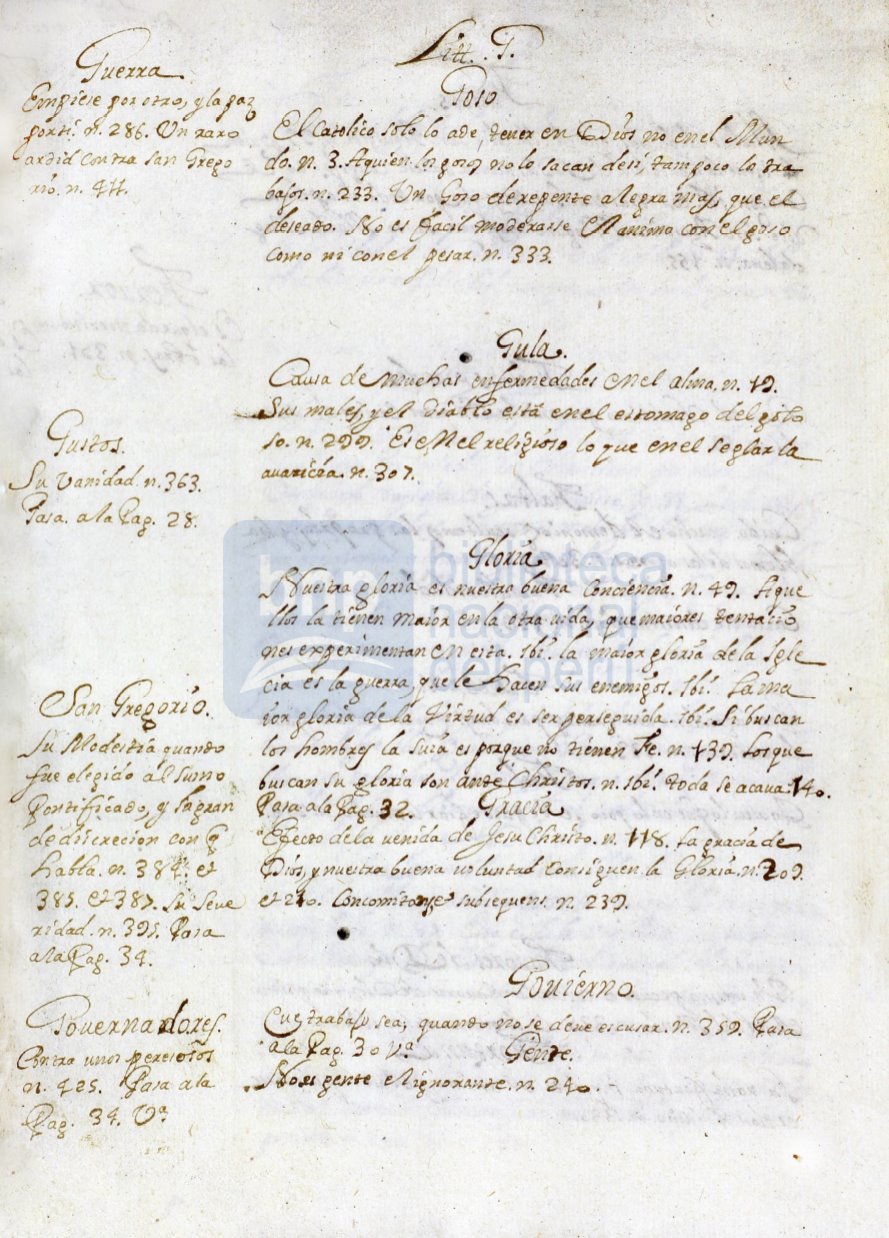 Litt. G.
Guerra
Empiese por otro, y la paz
por ti. n. 286. Un raro
ardid contra San Grego
rio. n. 411.
Gustos.
Su vanidad. n. 363.
Pasa. a la Pag. 28.
San Gregorio.
Su Modestia quando
fue elegido al sumo
Pontificado, y su gran
de discrecion con q
habla. n. 384. et
385. et 387. Su Seve
ridad. n. 395. Pasa
a la Pag. 34.
Governadores.
Contra unos peresosos
n. 425. Pasa a la
Pag. 34. Vª
Goso
El Catolico solo lo a de, tener en Dios no en el Mun
do. n. 3. A quien los gosos no lo sacan de si, tampoco los tra
bajos. n. 233. Un Goso de repente alegra mas, que el
deseado. No es facil moderarse el animo con el goso
como ni con el pesar. n. 333.
Gula.
Causa de muchas enfermedades en el alma. n. 19.
Sus males, y el diablo está en el estomago del golo
so. n. 299. Es en el religioso lo que en el seglar la
avaricia. n. 307.
Gloria
Nuestra gloria es nuestra buena conciencia. n. 49. Aque
llos la tienen maior en la otra vida, que maiores tentacio
nes experimentan en esta. Ibi. la maior gloria de la Igle
cia es la guerra, que le hacen sus enemigos. Ibi. La ma
ior gloria de la Virtud es ser perseguida. Ibi. Si buscan
los hombres la suia es porque no tienen Fe. n. 139. Los que
buscan su gloria son ante Christos. n. Ibi. toda se acava. 140.
Pasa a la Pag. 32.
Gracia
Efecto de la venida de Jesu Christo. n. 118. La gracia de
Dios, y nuestra buena voluntad consiguen la Gloria. n. 209.
et 210. Concomitans et subsequens. n. 239.
Govierno.
Cuy trabajo sea, quando no se deve escusar. n. 359. Pasa
a la Pag. 30 vª
Gente.
No es gente el ignorante. n. 240.
bnp
biblioteca
nacional
del perú